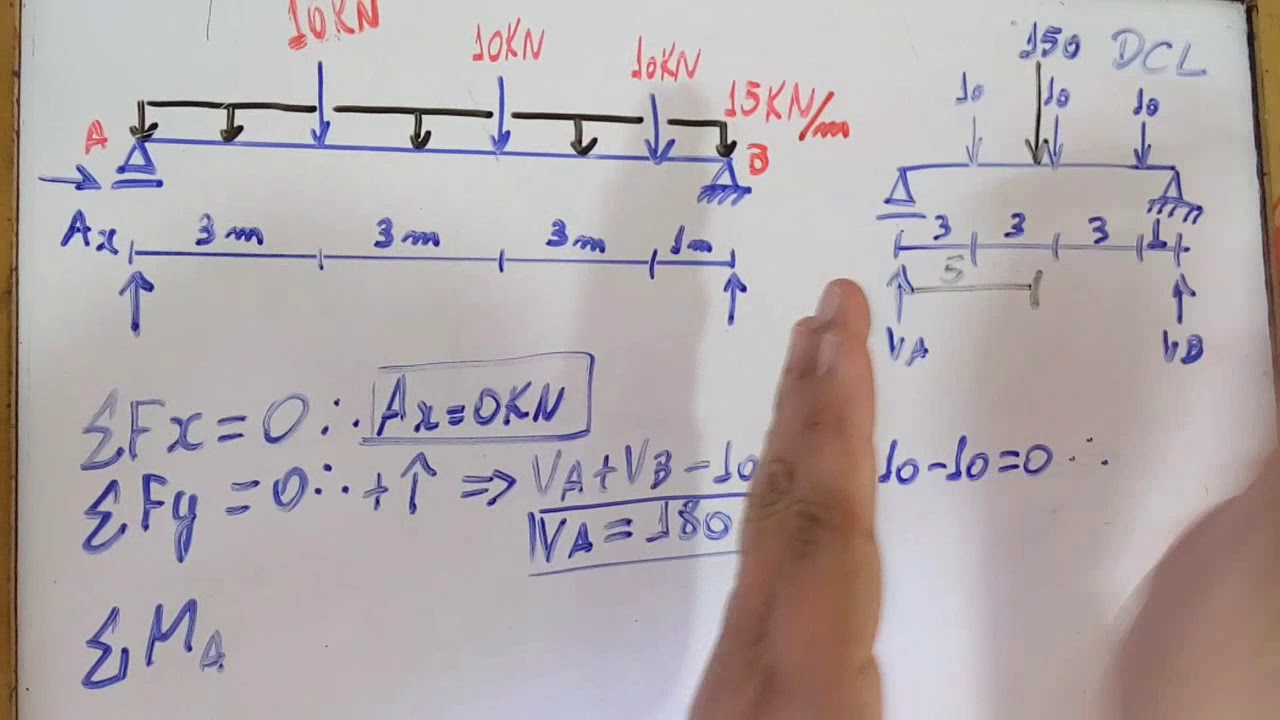 10KN
10KN
10KN
15KN/m
A
B
Ax
3m
3m
3m
1m
150
DCL
10
10
10
3
3
3
1
5
VA
VB
ΣFx=0∴ Ax=0KN
ΣFy=0∴+↑ ⇒ VA+VB-10 10-10=0∴
VA=180
ΣMA